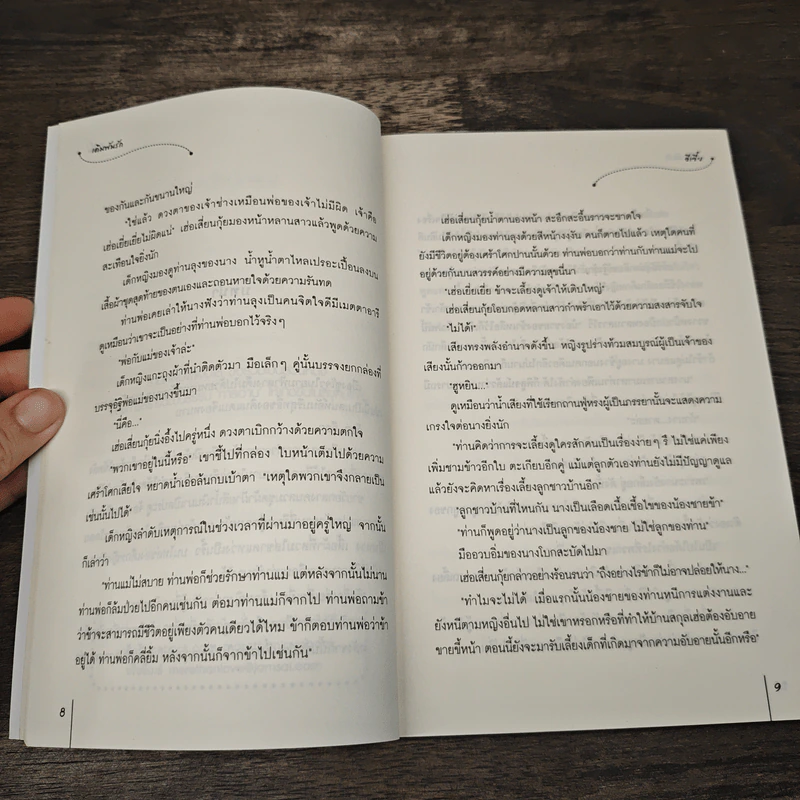 เดิมพันรัก
ของกันและกันขนานใหญ่
"ใช่แล้ว ดวงตาของเจ้าช่างเหมือนพ่อของเจ้าไม่มีผิด เจ้าคือ
เฮ่อเยี่ยเยี่ยไม่ผิดแน่" เฮ่อเสี่ยนกุ้ยมองหน้าหลานสาวแล้วพูดด้วยความ
สะเทือนใจยิ่งนัก
เด็กหญิงมองดูท่านลุงของนาง น้ำหูน้ำตาไหลเปรอะเปื้อนลงบน
เสื้อผ้าชุดสุดท้ายของตนเองและถอนหายใจด้วยความรันทด
ท่านพ่อเคยเล่าให้นางฟังว่าท่านลุงเป็นคนจิตใจดีมีเมตตาอารี
ดูเหมือนว่าเขาจะเป็นอย่างที่ท่านพ่อบอกไว้จริงๆ
"พ่อกับแม่ของเจ้าล่ะ"
เด็กหญิงแกะถุงผ้าที่นำติดตัวมา มือเล็กๆ คู่นั้นบรรจงยกกล่องที่
บรรจุอัฐิพ่อแม่ของนางขึ้นมา
"นี่คือ..."
เฮ่อเสี่ยนกุ้ยนิ่งอึ้งไปครู่หนึ่ง ดวงตาเบิกกว้างด้วยความตกใจ
"พวกเขาอยู่ในนี้หรือ" เขาชี้ไปที่กล่อง ใบหน้าเต็มไปด้วยความ
เศร้าโศกเสียใจ หยาดน้ำเอ่อล้นกบเบ้าตา "เหตุใดพวกเขาจึงกลายเป็น
เช่นนั้นไปได้"
เด็กหญิงลำดับเหตุการณ์ในช่วงเวลาที่ผ่านมาอยู่ครู่ใหญ่ จากนั้น
ก็เล่าว่า
"ท่านแม่ไม่สบาย ท่านพ่อก็ช่วยรักษาท่านแม่ แต่หลังจากนั้นไม่นาน
ท่านพ่อก็ล้มป่วยไปอีกคนเช่นกัน ต่อมาท่านแม่ก็จากไป ท่านพ่อถามข้า
ว่าข้าจะสามารถมีชีวิตอยู่เพียงตัวคนเดียวได้ไหม ข้าก็ตอบท่านพ่อว่าข้า
อยู่ได้ ท่านพ่อก็คลี่ยิ้ม หลังจากนั้นก็จากข้าไปเช่นกัน"
8
ซีเจี๋ย
เฮ่อเสี่ยนกุ้ยน้ำตานองหน้า สะอึกสะอื้นราวจะขาดใจ
เด็กหญิงมองท่านลุงด้วยสีหน้างงงัน คนก็ตายไปแล้ว เหตุใดคนที่
ยังมีชีวิตอยู่ต้องเศร้าโศกปานนั้นด้วย ท่านพ่อบอกว่าท่านกับท่านแม่จะไป
อยู่ด้วยกันบนสวรรค์อย่างมีความสุขนี่นา
"เฮ่อเยี่ยเยี่ย ข้าจะเลี้ยงดูเจ้าให้เติบใหญ่"
เฮ่อเสี่ยนกุ้ยโอบกอดหลานสาวกำพร้าเอาไว้ด้วยความสงสารจับใจ
"ไม่ได้!"
เสียงทรงพลังอำนาจดังขึ้น หญิงรูปร่างท้วมสมบูรณ์ผู้เป็นเจ้าของ
เสียงนั้นก้าวออกมา
"ฮูหยิน..."
ดูเหมือนว่าน้ำเสียงที่ใช้เรียกถานฟู่หรงผู้เป็นภรรยานั้นจะแสดงความ
เกรงใจต่อนางยิ่งนัก
"ท่านคิดว่าการจะเลี้ยงดูใครสักคนเป็นเรื่องง่ายๆ รึ ไม่ใช่แค่เพียง
เพิ่มชามข้าวอีกใบ ตะเกียบอีกคู่ แม้แต่ลูกตัวเองท่านยังไม่มีปัญญาดูแล
แล้วยังจะคิดหาเรื่องเลี้ยงลูกชาวบ้านอีก"
"ลูกชาวบ้านที่ไหนกัน นางเป็นเลือดเนื้อเชื้อไขของน้องชายข้า"
"ท่านก็พูดอยู่ว่านางเป็นลูกของน้องชาย ไม่ใช่ลูกของท่าน"
มืออวบอิ่มของนางโบกสะบัดไปมา
เฮ่อเสี่ยนกุ้ยกล่าวอย่างร้อนรนว่า "ถึงอย่างไรข้าก็ไม่อาจปล่อยให้นาง..."
"ทำไมจะไม่ได้ เมื่อแรกนั้นน้องชายของท่านหนีการแต่งงานและ
ยังหนีตามหญิงอื่นไป ไม่ใช่เขาหรอกหรือที่ทำให้บ้านสกุลเฮ่อต้องอับอาย
ขายขี้หน้า ตอนนี้ยังจะมารับเลี้ยงเด็กที่เกิดมาจากความอับอายนั้นอีกหรือ"
9